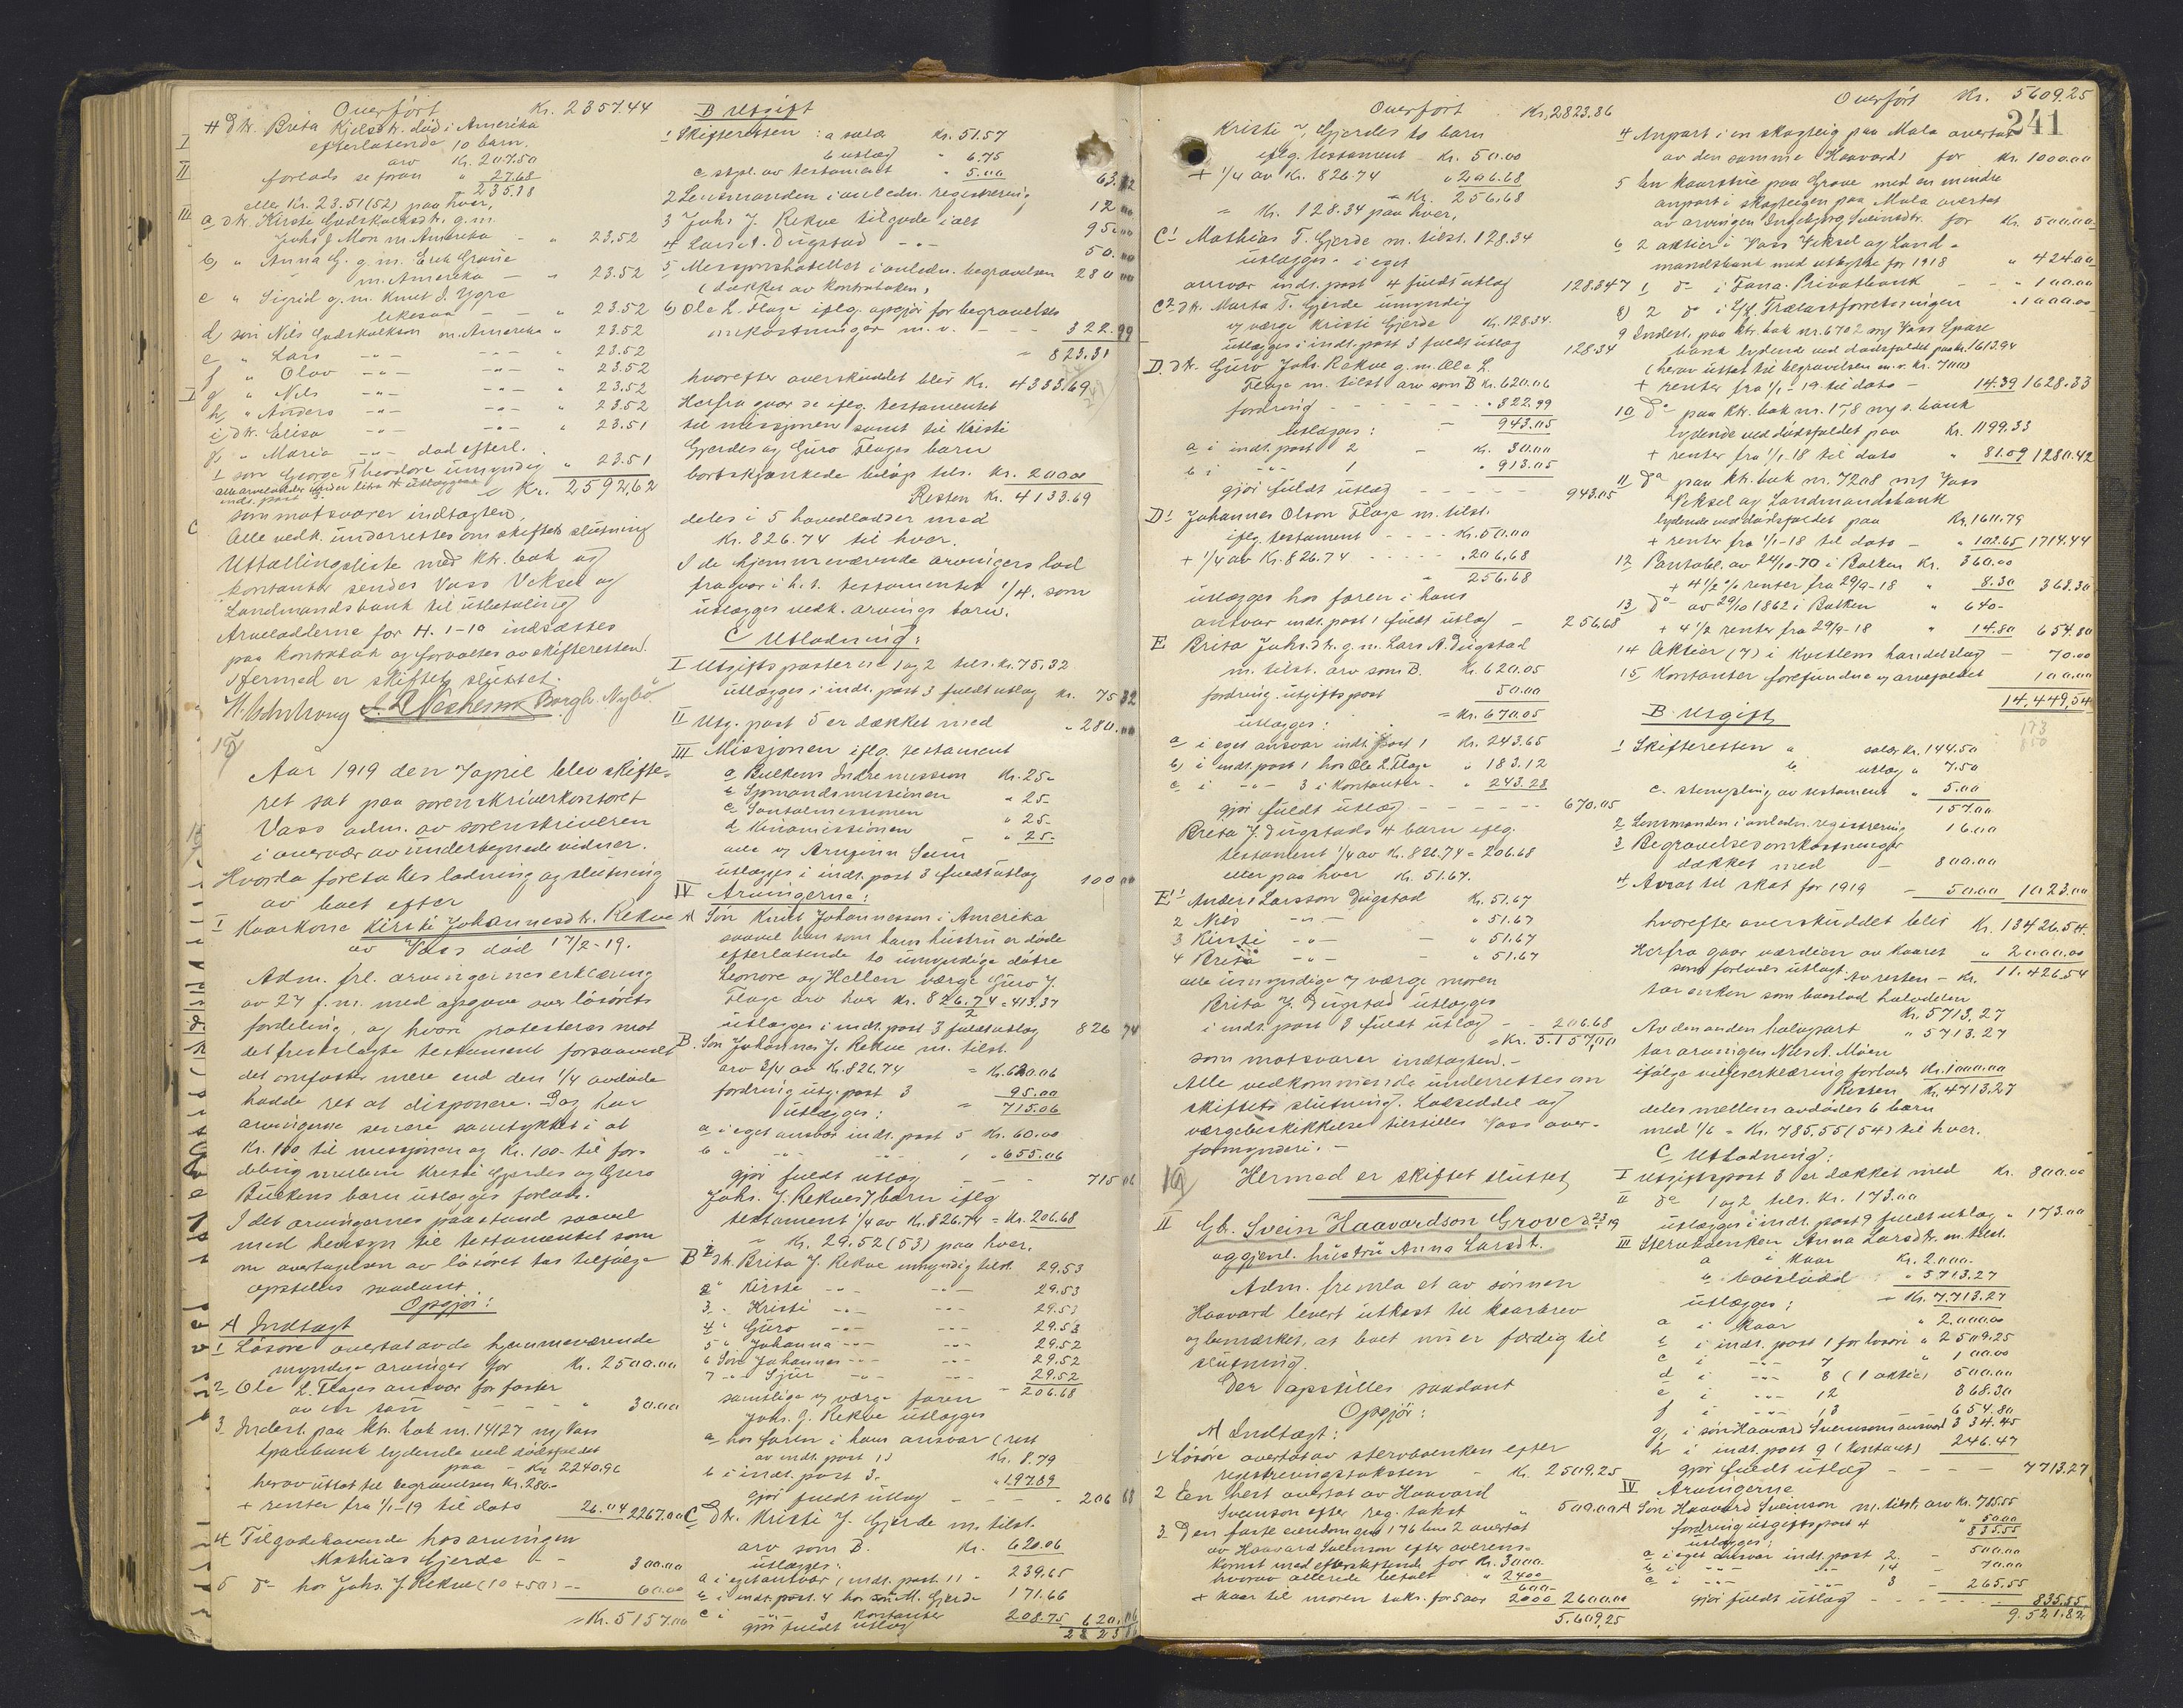 Overført Kr. 2357.44
H Dtr. Brita Kjelsdtr. död i Amerika
efterlatende 10 barn.
I arv Kr. 207.50
II forlods se foran " 27.68
= 235.18
eller Kr. 23.51 (52) paa hver,
III a dtr. Kirsti Godskalksdtr. g.m.
Johs J. Mon m. Amerika - " 23.52
b) " Anna G. g.m. Erik Grove
m. Amerika - " 23.52
c " Sigrid g.m. Knut S. Ygre
likesaa - - " 23.52
d) sön Nils Godskalkson m. Amerika " 23.52
e " Lars -"- -"- " 23.52
f " Olav -"- -"- " 23.52
g " Nils -"- -"- " 23.52
h) " Anders -"- -"- " 23.52
i) dtr. Elisa -"- -"- " 23.51
k " Maria -"- död efterl.
1 sön George Theodore umyndig " 23.51
alle arvelodder under litra H utlægges i
indt. post 3. = Kr. 2592,62
som motsvarer indtægten.
C Alle vedk. underrettes om skiftets slutning
Uttællingsliste med ktr. bok og
kontanter sendes Voss Veksel og
Landmandsbank til utbetaling
Arvelodderne for H. 1-10 indsættes
paa kontrabok og forvaltes av skifteretten.
Hermed er skiftet sluttet.
Borgh. Nybö
Aar 1919 den 7 april blev skifte-
ret sat paa sorenskriverkontoret
Voss adm. av sorenskriveren
i overvær av undertegnede vidner.
Hvorda foretokes lodning og slutning
av boet efter
I Kaarkone Kirsti Johannesdtr. Rekve
av Voss död 17/2-19.
Adm. frl. arvingernes erklæring
av 27 f.m. med opgave over lösörets
fordeling, og hvori protesteres mot
det fremlagte testament forsaavidt
det omfatter mere end den 1/4 avdöde
hadde ret at disponere. Dog har
arvingerne senere samtykket i at
Kr. 100 til missjonen og Kr. 100- til for-
deling mellem Kristi Gjerdes og Guro
Bulkens barn utlægges forlods.
I det arvingernes paastand saavel
med hensyn til testamentet som
om overtagelsen av lösöret tas tilfölge
opstilles saadant
Opgjör:
A Indtægt
1 Lösöre overtat av de hjemmeværende
myndige arvinger for Kr. 2500.00
2 Ole L. Flages ansvar for foster
av en sau - - - - " 30.00
3 Indest. paa ktr. bok nr. 14127 m/ Voss
sparebank lydende ved dödsfaldet
paa - Kr. 2240.96
herav uttat til begravelsen Kr. 280-
+ renter fra 1/1-19 til dato 26.04 2267.00
4 Tilgodehavende hos arvingen
Mathias Gjerde - - 300.00
5 do hos Johs. J. Rekve (10+50) -- 60.00
= Kr. 5157.00
B Utgift
1 Skifteretten: a salær Kr. 51.57
b utlæg " 6.75
c stpl. av testament " 5.00 63.32
2 Lensmanden i anledn. registrering 12.00
3 Johs J. Rekve tilgode i alt 95.00
4 Lars A. Dugstad - - - 50.00
5 Missjonshotellet i anledn. begravelsen 280.00
(dækket av kontraboken)
6) Ole L. Flage iflg. opgjör for begravelses
omkostninger m.v. - - - 322.99
= 823.31
hvorefter overskuddet blir Kr. 4333.69
Herfra gaar de iflg. testamentet
til missjonen samt til Kristi
Gjerdes og Guro Flages barn
bortskjænkede belöp tils. Kr. 200.00
Resten Kr. 4133.69
deles i 5 hovedlodder med
Kr. 826.74 til hver.
I de hjemmeværende arvingers lod
fragaar i h.t. testamentet 1/4. som
utlægges vedk. arvings barn.
C Utlodning:
I Utgiftsposterne 1 og 2 tils. kr. 75,32
utlægges i indt. post 3 fuldt utlæg Kr. 75.32
II Utg. post 5 er dækket med " 280.00
III Missjonen iflg. testament
a Bulkens Indremission Kr. 25-
b Sjömandsmissionen " 25-
c Santalmissionen " 25-
d Kinamissionen - " 25-
alle v/ Arnfinn Seim
utlægges i indt. post 3 fuldt utlæg 100.00
IV Arvingerne:
A Sön Knut Johannesson i Amerika
saavel han som hans hustru er döde
efterlatende to umyndige dötre
Leonore og Hellen værge Guro J.
Flage arv hver Kr. 826.74/2 = 413.37
utlægges i indt. post 3 fuldt utlæg 826.74
B. Sön Johannes J. Rekve m. tilst.
arv 3/4 av Kr. 826.74 = Kr. 620.06
fordring utg. post 3 95.00
utlægges: = 715.06
a i eget ansvar indt. post 5 Kr. 60.00
b " -"- -"- 1 " 655.06
gjör fuldt utlæg - - - 715.06
Johs. J. Rekves 7 barn iflg
testament 1/4 av Kr. 826.74 = Kr. 206.68
= Kr. 29.52 (53) paa hver.
B1 dtr. Brita J. Rekve umyndig tilst. 29.53
2 " Kirsti -"- -"- 29.53
3. " Kristi -"- -"- 29.53
4 " Guro -"- -"- 29.53
5 " Johanna -"- -"- 29.52
6 Sön Johannes -"- -"- 29.52
7 -"- Sjur -"- -"- 29.52
samtlige v/ værge faren = 206.68
Johs. J. Rekve utlægges
a hos faren i hans ansvar (rest
av indt. post 1) Kr. 8.79
b i indt. post 3. " 197.89
gjör fuldt utlæg - - - 206.68
C Dtr. Kristi J. Gjerde m. tilst.
arv som B. Kr. 620.06
utlægges:
a i eget ansvar (indt. post. 1) - 239.65
b i indt. post. 4 hos M. Gjerde 171.66
c i -"- 3 kontanter 208.75 620.06
gjör fuldt utlæg 2823.86
Overført Kr. 2823.86
Kristi J. Gjerdes to barn
iflg. testament - Kr. 50.00
+ 1/4 av Kr. 826.74 " 206.68
= Kr. 256.68
= Kr. 128.34 paa hver,
C1 Mathias T. Gjerde m. tilst. 128.34
utlægges i eget
ansvar indt. post 4 fuldt utlæg 128.34
C2 dtr. Marta T. Gjerde umyndig
v/ værge Kristi Gjerde Kr. 128.34.
utlægges i indt. post 3 fuldt utlæg 128.34
D. dtr. Guro Johs. Rekve g.m. Ole L.
Flage m. tilst. arv som B Kr. 620.06
fordring - - - - - " 322.99
utlægges: = 943.05
a i indt. post 2 - Kr. 30.00
b i -"- 1 " 913.05
gjör fuldt utlæg - - - - 943.05
D1 Johannes Olson Flage m. tilst.
iflg. testament - - - - Kr. 50.00
+ 1/4 av Kr. 826.74 - - - - " 206.68
= 256.68
utlægges hos faren i hans
ansvar indt. post 1 fuldt utlæg - 256.68
E Brita Johs.dtr. g.m. Lars A. Dugstad
m. tilst. arv som B. Kr. 620.05
fordring utgiftspost 50.00
utlægges: = Kr. 670.05
a i eget ansvar indt. post 1 Kr. 243.65
b) i indt. post 1 hos Ole L. Flage " 183.12
c i -"- 3 i kontanter " 243.28
gjör fuldt utlæg - - - - 670.05
Brita J. Dugstads 4 barn iflg.
testament 1/4 av Kr. 826.74 = 206.68
eller paa hver Kr. 51.67.
E1 Anders Larsson Dugstad Kr. 51.67
2 Nils -"- " 51.67
3 Kirsti -"- - " 51.67
4 Brita -"- - " 51.67
alle umyndige v/ værge moren
Brita J. Dugstad utlægges
i indt. post 3 fuldt utlæg - - 206.68
= Kr. 5.157,00
som motsvarer indtægten. -
Alle vedkommende underrettes om
skiftets slutning. Lodseddel og
værgebeskikkelse tilstilles Voss over-
formynderi. -
Hermed er skiftet sluttet,
II Gb. Svein Haavardson Grove
og gjenl. hustru Anna Larsdt.
Adm. fremla et av sönnen
Haavard levert utkast til kaarbrev
og bemærket, at boet nu er færdig til
slutning.
Der opstilles saadant
Opgjör:
A Indtægt:
1 Lösöre overtat av stervboenken efter
registreringstaksten - Kr. 2509.25
2 En hest overtat av Haavard
Sveinson efter reg. takst " 500.00
3 Den faste eiendom gnr 176 bnr 2 overtat
av Haavard Sveinson efter overens-
komst med efterskiftende for Kr. 3000.
hvorav allerede betalt " 2400
600-
+ kaar til moren taks. for 5 aar 2000 2600.00
5.609,25
Overført Kr. 5609.25
241
4 Anpart i en skogteig paa Mala overtat
av den samme Haavard for Kr. 1000.00
5 En kaarstue paa Grove med en mindre
anpart i skogteigen paa Mala overtat
av arvingen Ingebjörg Sveinsdtr. for Kr. 500.00
6 2 aktier i Voss Veksel og Land-
mandsbank med utbytte for 1918 " 424.00
7 1 do i Fana Privatbank - - " 100.00
8) 2 do i Trælastforretningen " 1000.00
9 Indest. paa ktr. bok nr. 6702 m/ Voss Spare
bank lydende ved dödsfaldet paa kr. 1613.94
(herav uttat til begravelsen m.v. kr. 700)
+ renter fra 1/1-19 til dato - 14.39 1628.33
10 do paa ktr. bok nr. 178 m/ s. bank
lydende ved dödsfaldet paa Kr. 1199.33
+ renter fra 1/1-18 til dato " 81.09 1280.42
11 do paa ktr. bok nr. 7208 m/ Voss
Veksel og Landmandsbank
lydende ved dödsfaldet paa Kr. 1611.79
+ renter fra 1/1-18 til dato - " 102.65 1714.44
12 Pantobl. av 24/10-70 i Balken Kr. 360.00
+ 4 1/2 % renter fra 29/9-18 " 8.30 368.30
13 do av 29/10 1862 i Balken " 640-
+ 4 1/2 renter fra 29/9-18 " 14.80 654.80
14 Aktier (7) i Kvitlens handelslag - 70.00
15 Kontanter forefundne v/ arvefaldet 100.00
14.449,54
B Utgift
173
850
1 Skifteretten a salær Kr. 144.50
b. utlæg " 7.50
c. stempling av testament " 5.00
157.00
2 Lensmanden i anledn. registrering 16.00
3 Begravelsesomkostninger
dækket med - 800.00
4 Avsat til skat for 1919 - 50.00 1023.00
hvorefter overskuddet blir Kr. 13426.54.
Herfra gaar værdien av kaaret " 2000.00
som forlods utlagt. Av resten - Kr. 11.426,54
tar enken som boeslod halvdelen
Kr. 5713,27
Av den anden halvpart " 5713.27
tar arvingen Nils A. Möen
ifölge viljeserklæring forlods Kr. 1000.00
Resten Kr. 4713.27
deles mellem avdödes 6 barn
med 1/6 = Kr. 785,55 (54) til hver.
C Utlodning:
I Utgiftspost 3 er dækket med Kr. 800.00
II do 1 og 2 tils. Kr. 173.00
utlægges i indt. post 9 fuldt utlæg " 173.00
III Stervboenken Anna Larsdtr. m. tilst.
a i kaar Kr. 2.000-
b boeslodd : " 5.713.27
utlægges: = Kr. 7.713.27
a i kaar " 2.000.00
b i indt. post 1 for lösöre " 2509.25
c i -"- 7 " 100.00
d i -"- 8 (1 aktie) 500.00
e i -"- 12 368.30
f i -"- 13 - 654.80
g) i sön Haavard Sveinsons ansvar 1334.45
h i indt. post 9 (kontant) 246.47
gjör fuldt utlæg - - - - 7713.27
IV Arvingerne
A Sön Haavard Sveinson m. tilst. arv Kr. 785.55
fordring utgiftspost 4 " 50.00
utlægges: 835.55
a i eget ansvar indt. post 2. - 500.00
b i -"- -"- 14 - 70.00
c -"- -"- 3 - 265.55
gjör fuldt utlæg - - - - 835.55
9.521,82